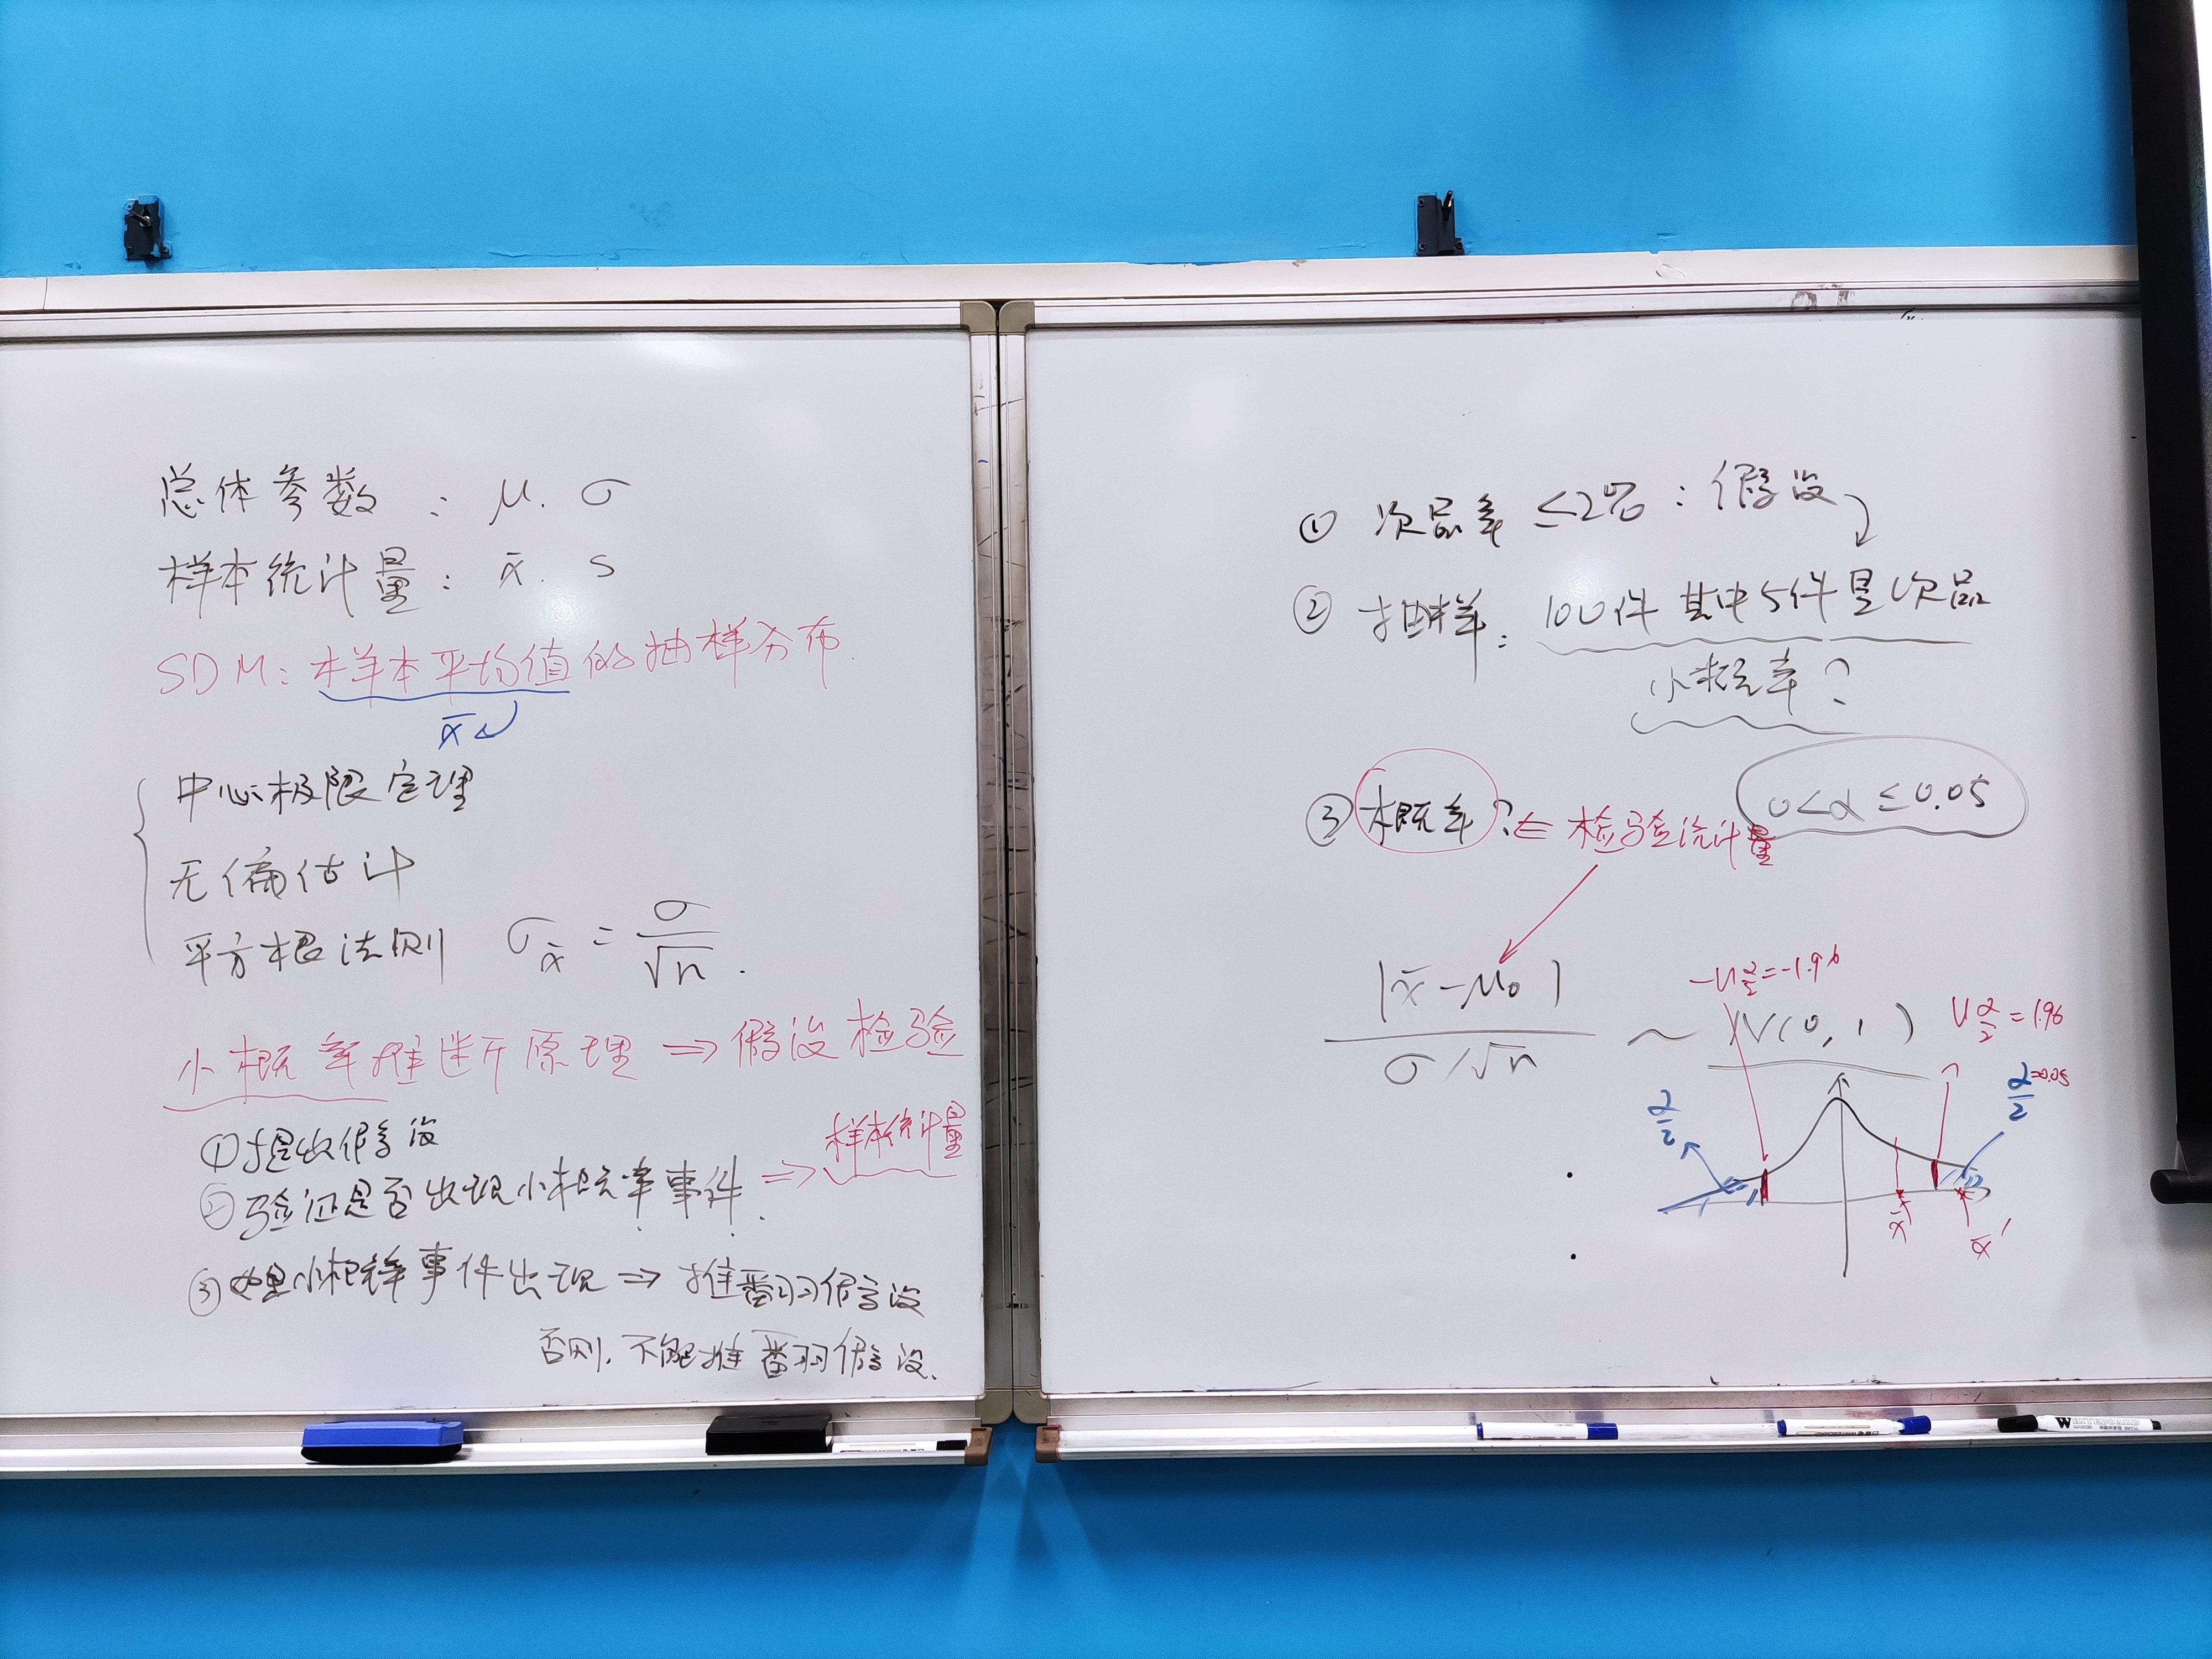 总体参数 : μ. σ
样本统计量 : x̄. s
SDM: 样本平均值的抽样分布.
x̄
中心极限定理
无偏估计
平方根法则 σx̄ = σ/√n .
小概率推断原理 ⇒ 假设检验
①提出假设
②验证是否出现小概率事件. ⇒ 样本统计量
③如果小概率事件出现 ⇒ 推翻假设
否则, 不能推翻假设.
① 次品率 ≤2% : 假设
② 抽样: 100件 其中5件是次品
小概率?
0<α≤0.05
③ 概率? ⇐ 检验统计量
|x̄-μ0| / σ/√n ~ N(0, 1)
-Uα/2=-1.96
Uα/2=1.96
α/2
α/2=0.05
x̄
x̄'
WHITEBOARD